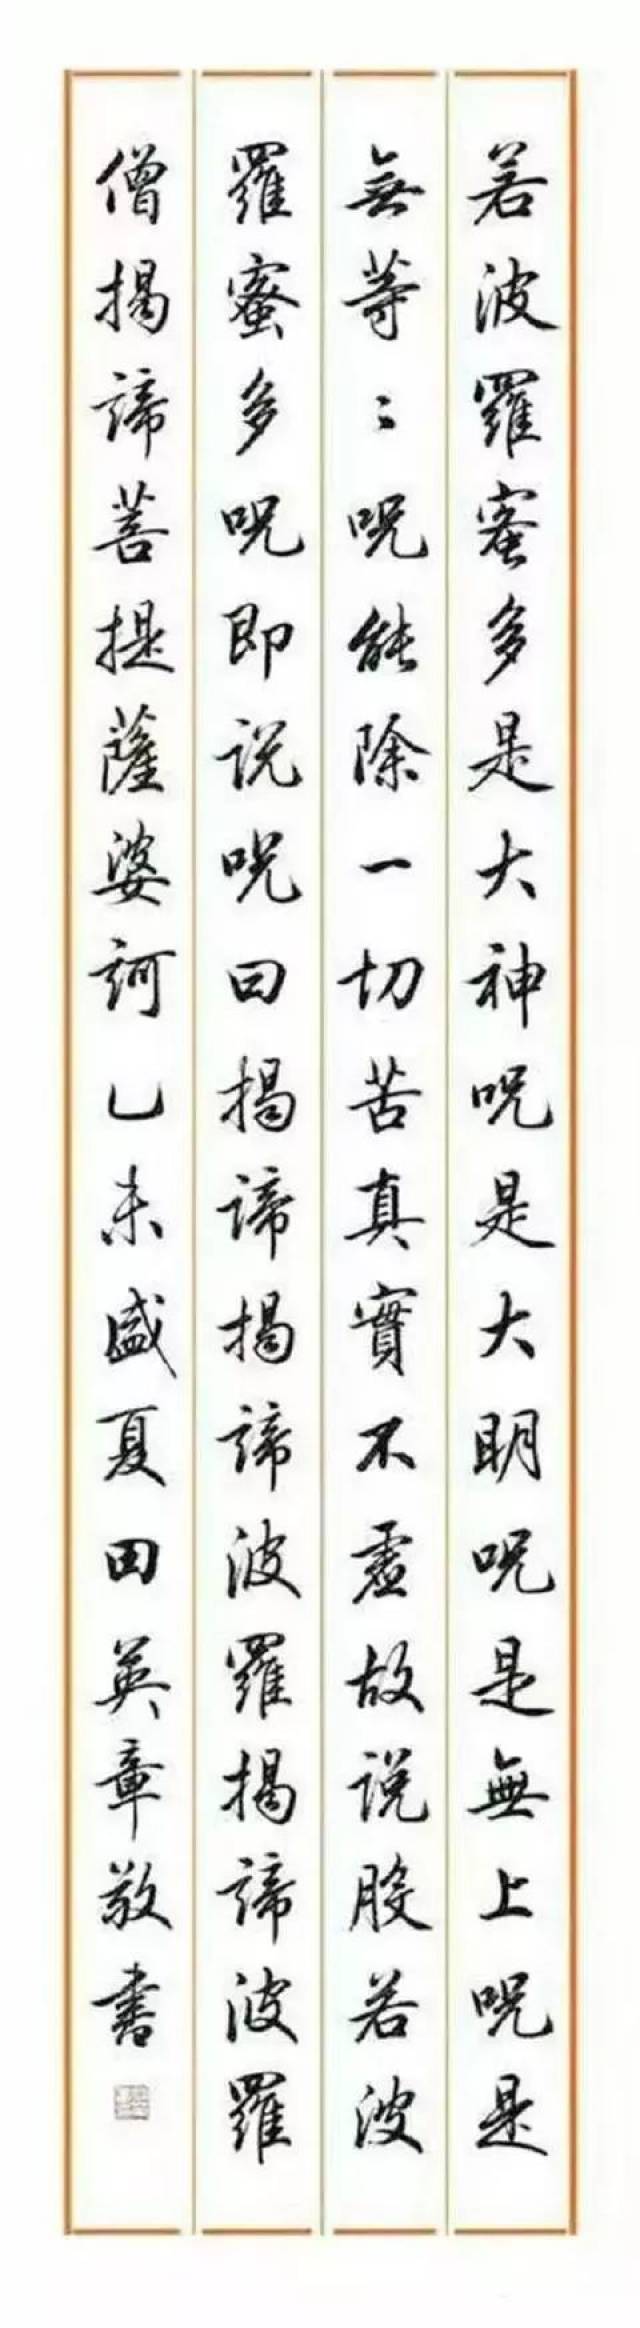 若波羅蜜多是大神咒是大明咒是無上咒是
無等〻咒能除一切苦真實不虛故說般若波
羅蜜多咒即說咒曰揭諦揭諦波羅揭諦波羅
僧揭諦菩提薩婆訶乙未盛夏田英章敬書